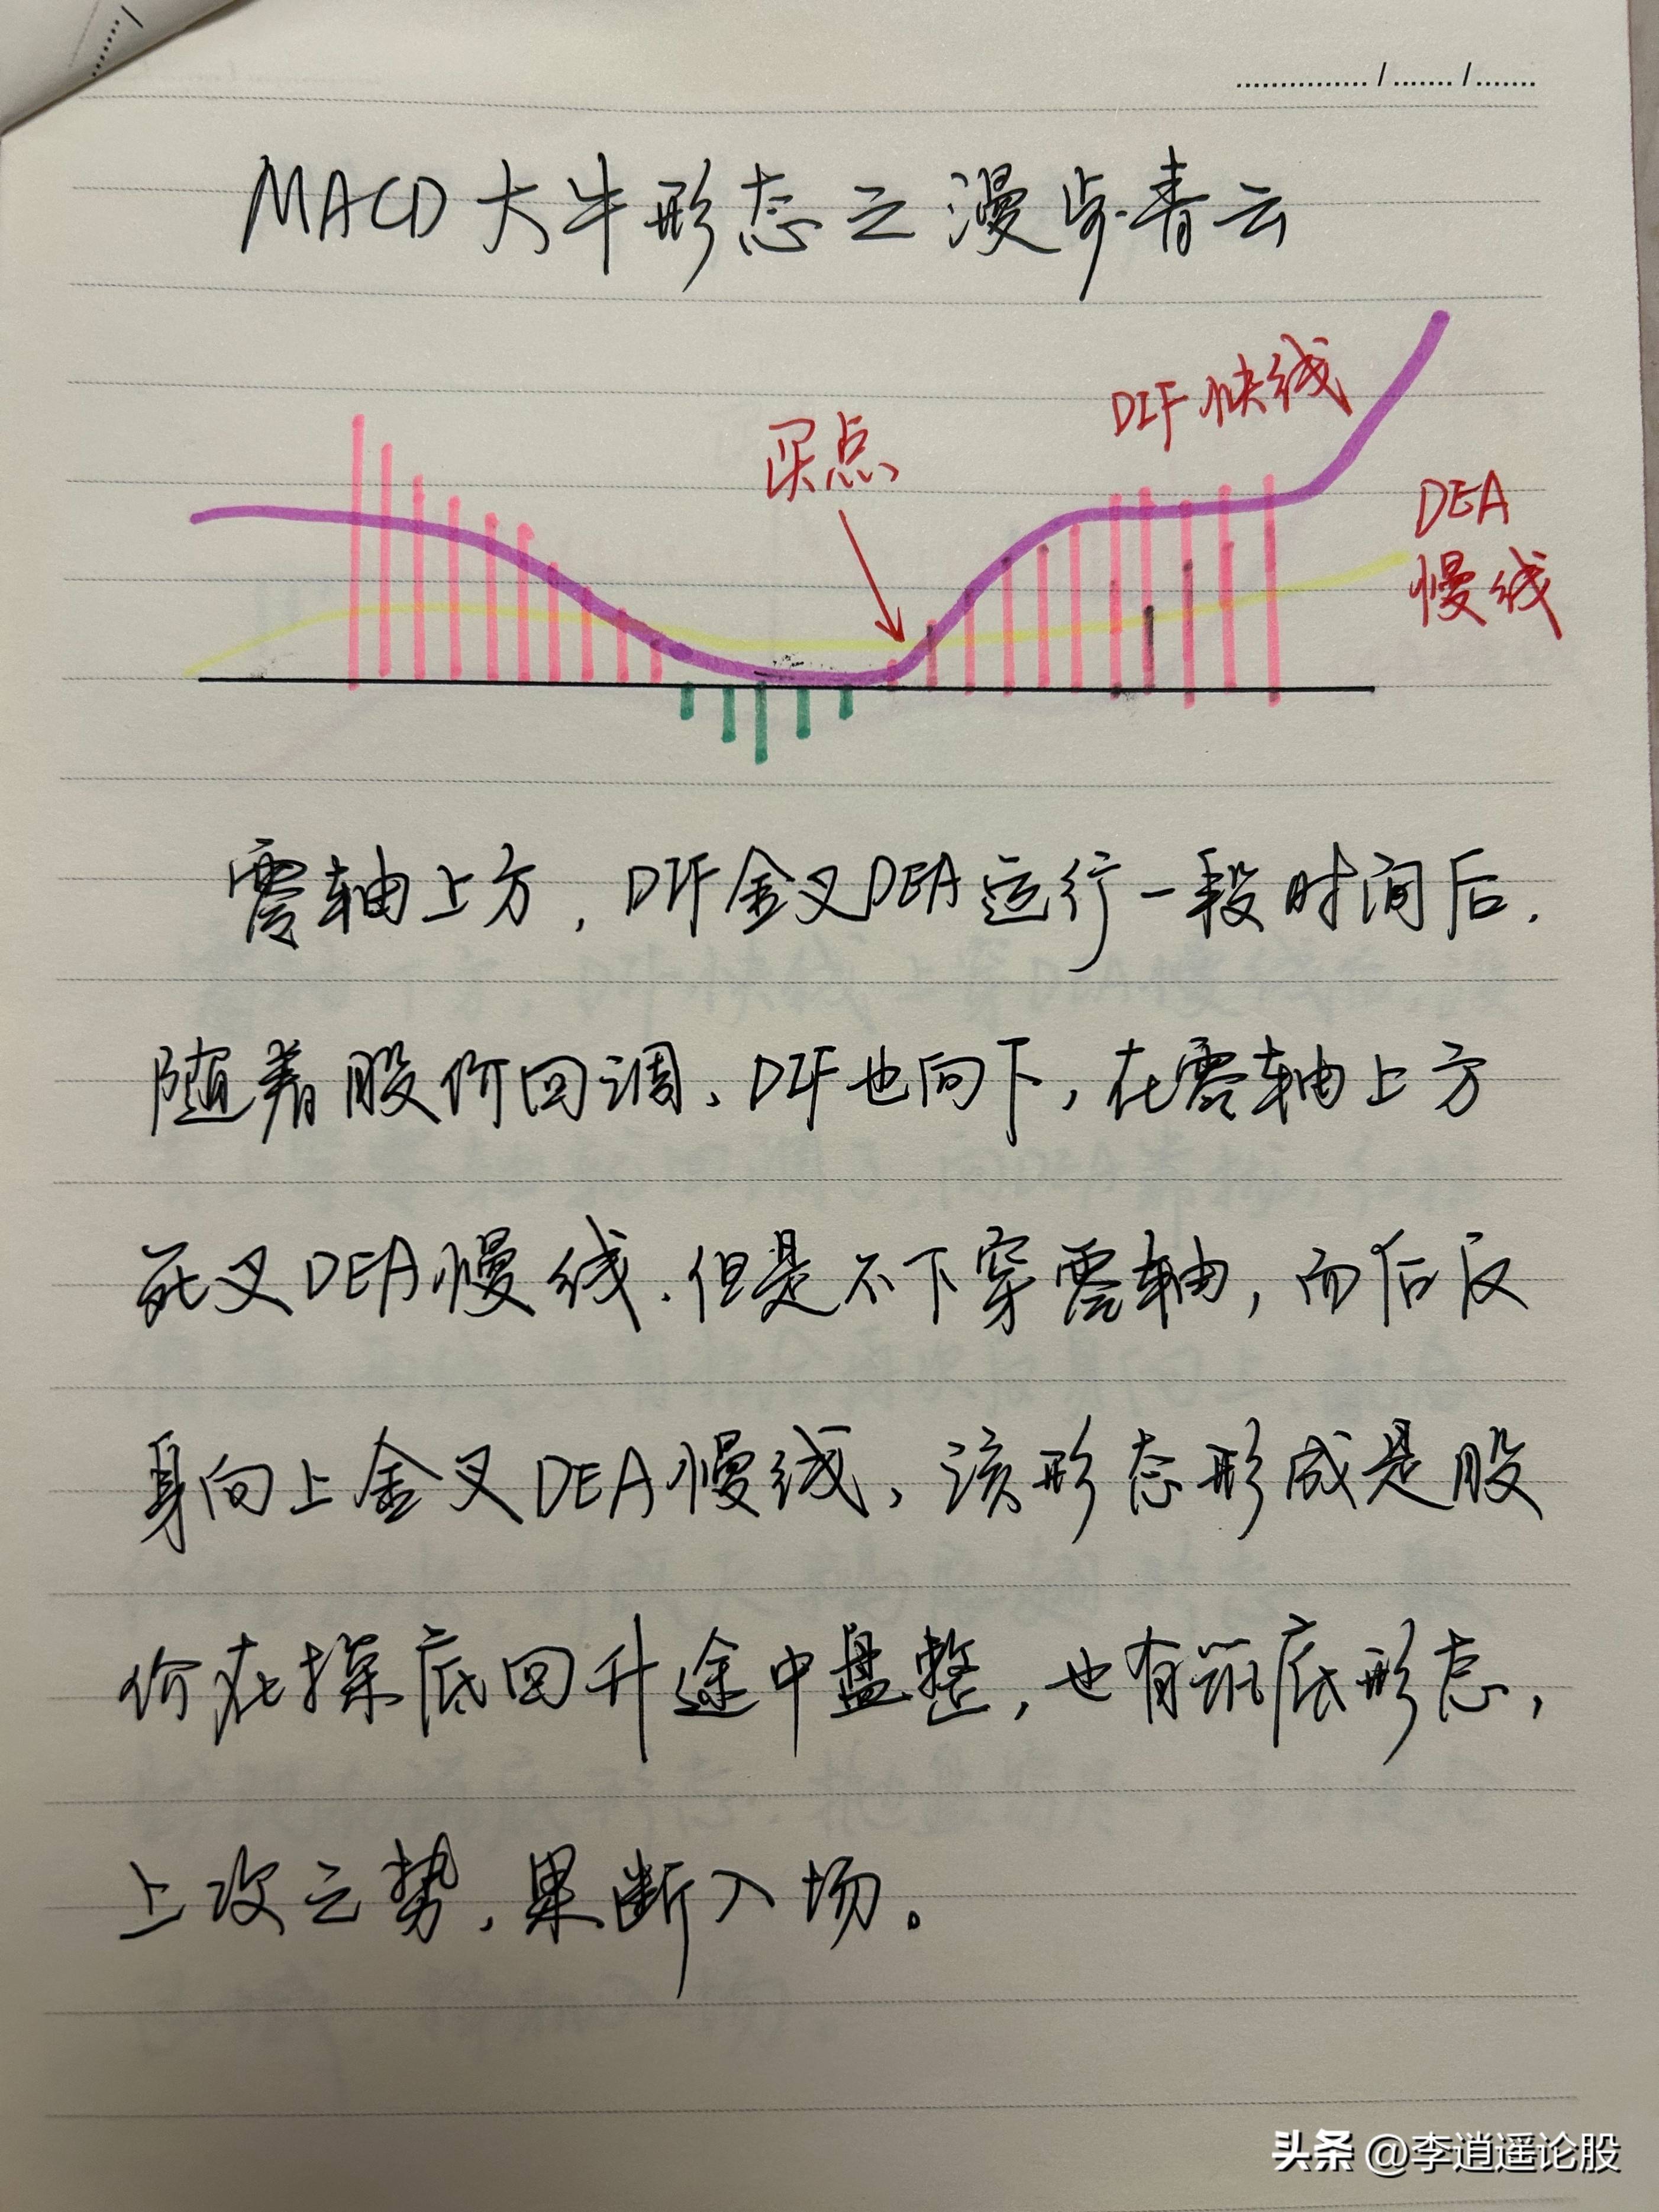 ............... / ....... / .......
MACD大牛形态之漫步青云
DIF快线
买点
DEA
慢线
零轴上方，DIF金叉DEA运行一段时间后.
随着股价回调、DIF也向下，在零轴上方
死叉DEA慢线.但是不下穿零轴，而后反
身向上金叉DEA慢线，该形态形成是股
价在探底回升途中盘整，也有筑底形态，
上攻之势，果断入场。
头条 @李逍遥论股